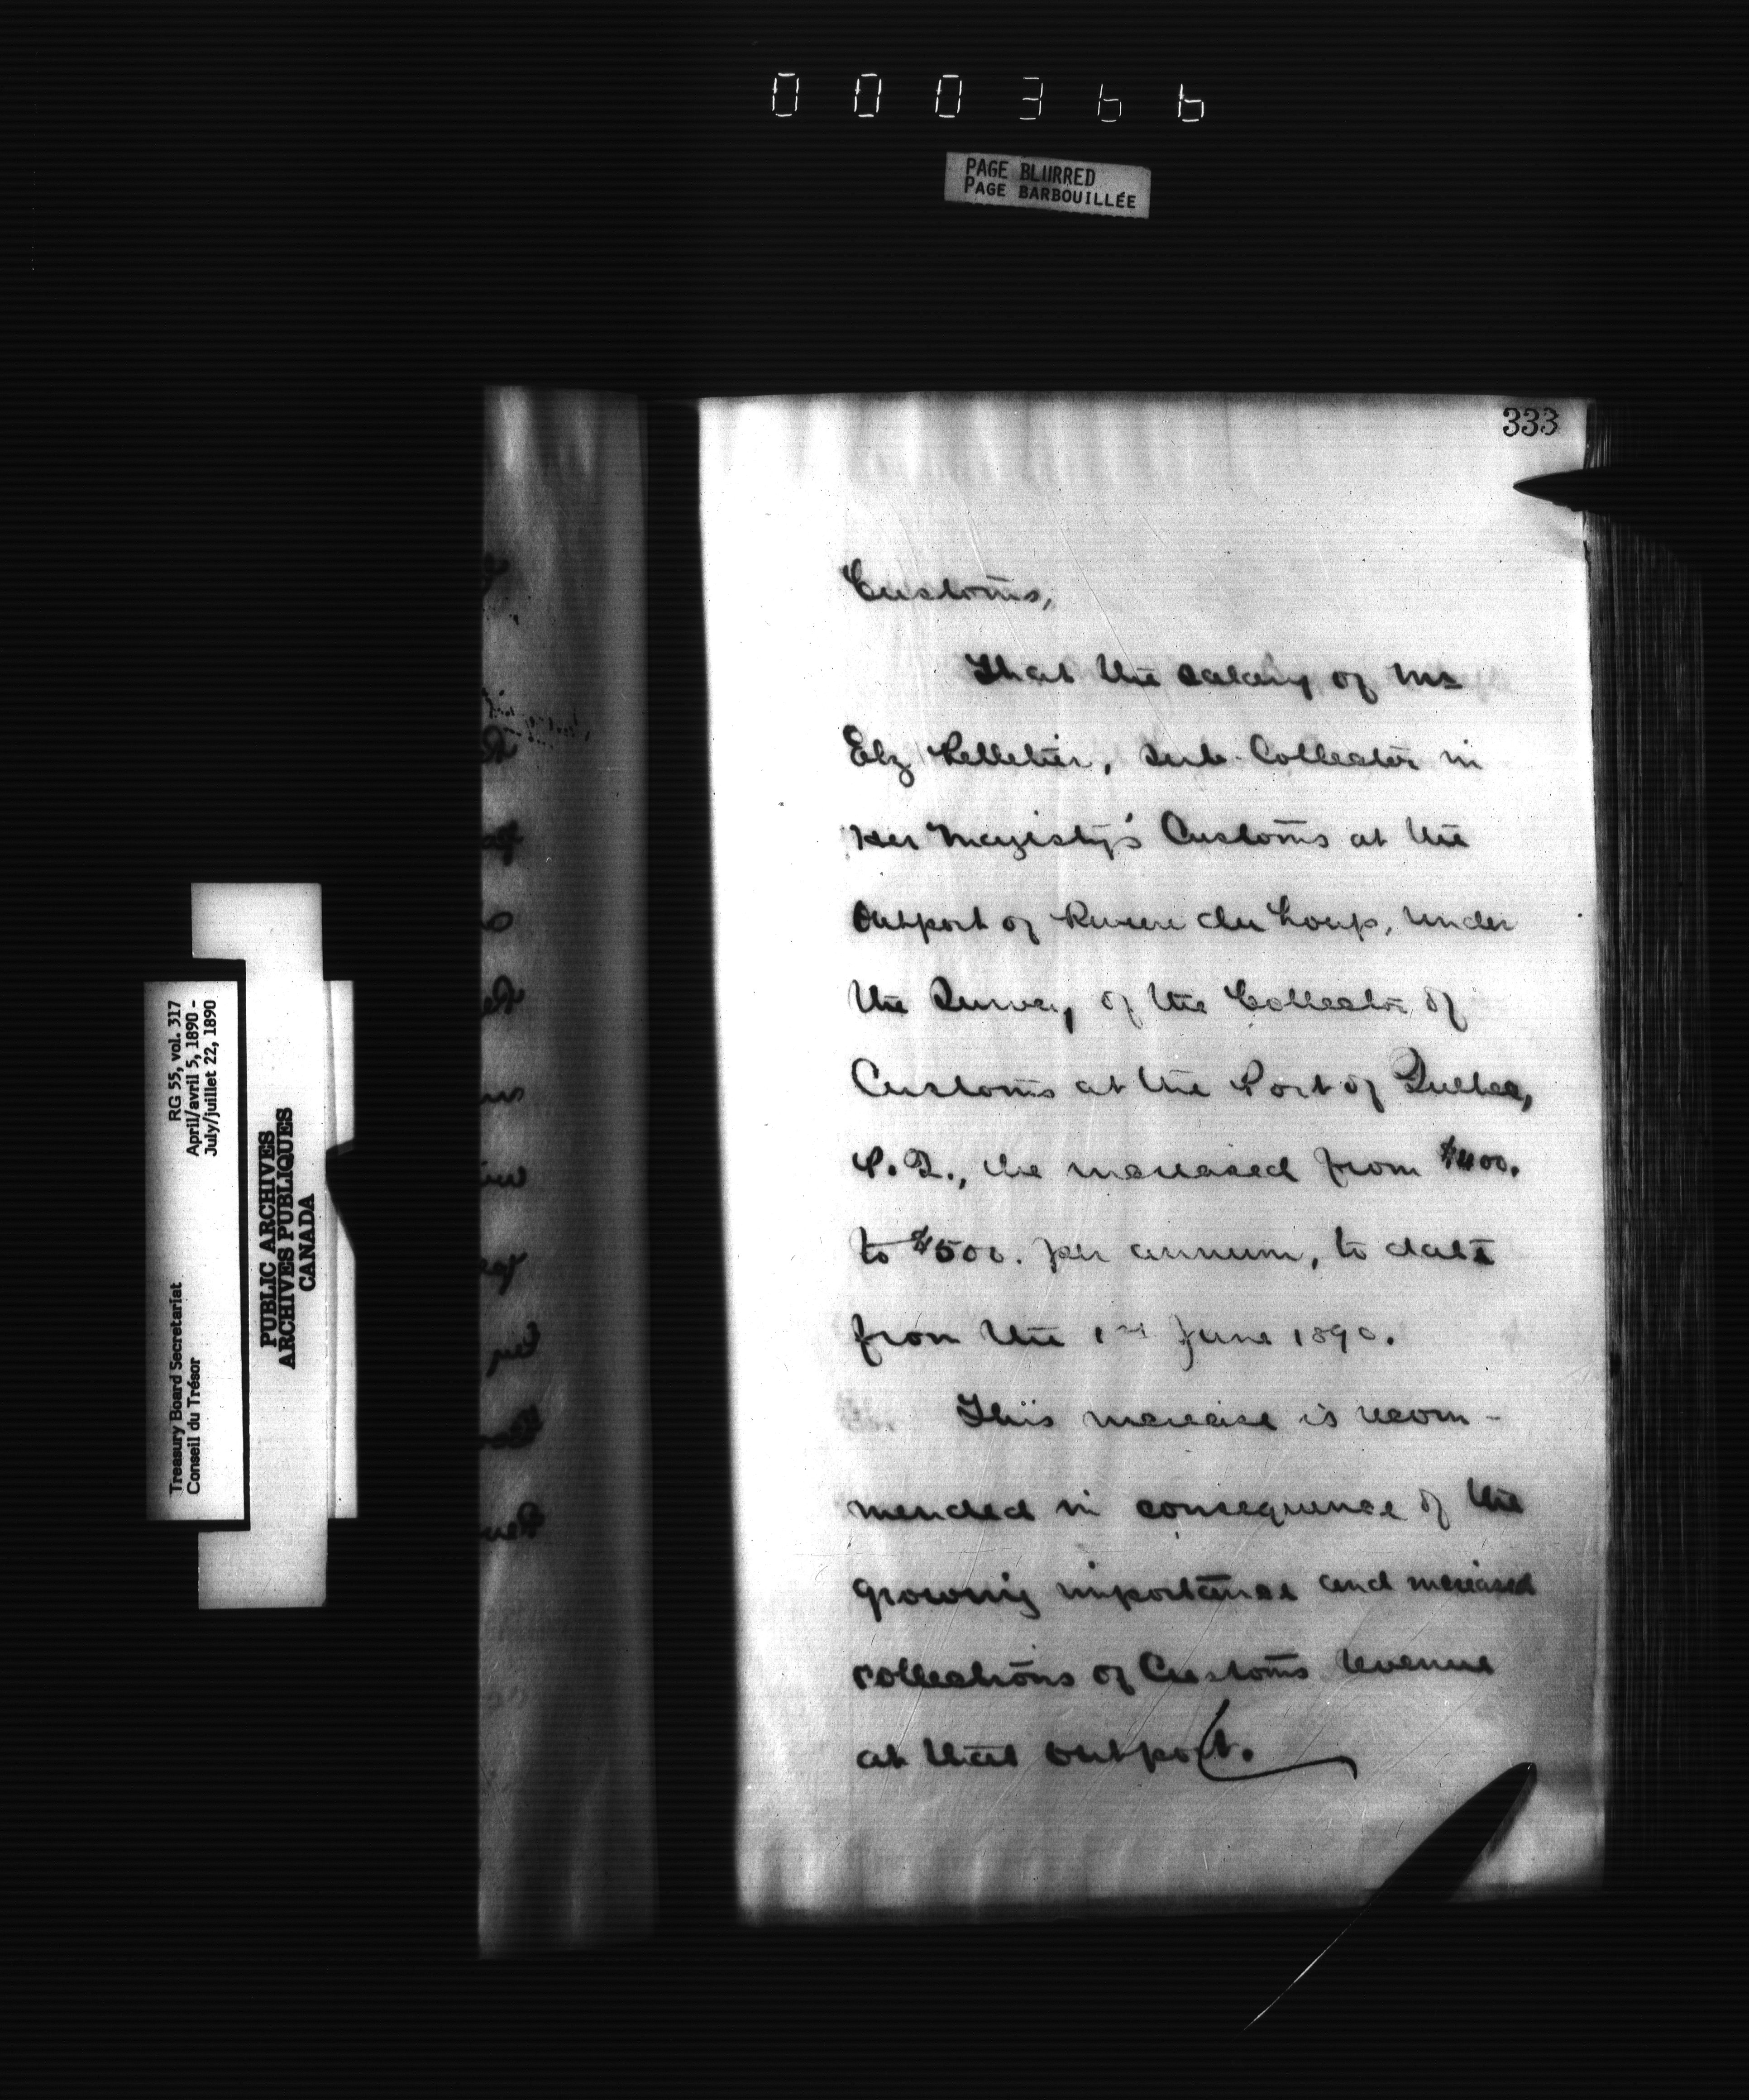 000366
PAGE BLURRED
PAGE BARBOUILLÉE
333
Customs,
That the salary of Mr
Elz Pelletier, Sub-Collector in
Her Majesty's Customs at the
Outport of Riviere du Loup, under
the Survey of the Collector of
Customs at the Port of Quebec,
P.Q., be increased from $400.
to $500. per annum, to date
from the 1st June 1890.
This increase is recom-
mended in consequence of the
growing importance and increased
collections of Customs revenue
at that outport.
Treasury Board Secretariat
Conseil du Trésor
RG 55, vol. 317
April/avril 5, 1890 -
July/juillet 22, 1890
PUBLIC ARCHIVES
ARCHIVES PUBLIQUES
CANADA